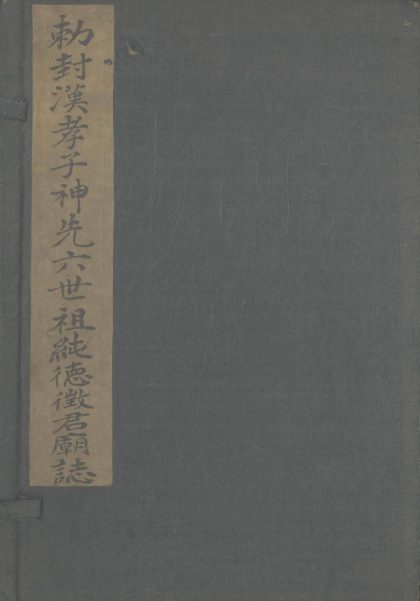 勅封漢孝子神先六世祖純徳徵君廟誌